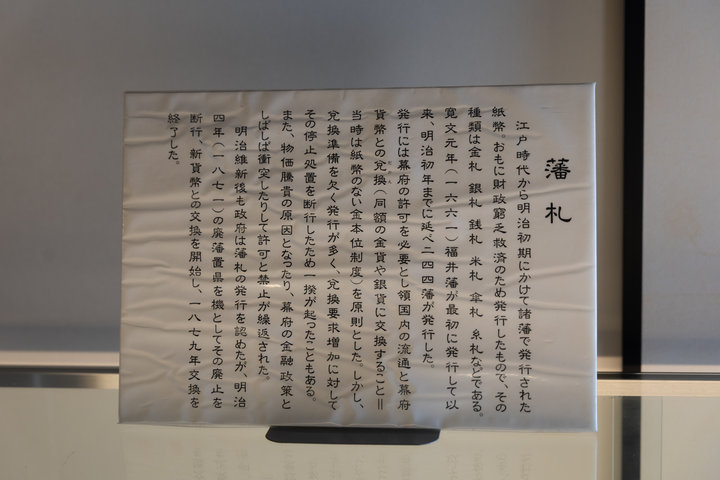 藩札
江戸時代から明治初期にかけて諸藩で発行された
紙幣。おもに財政窮乏救済のため発行したもので、その
種類は金札 銀札 銭札 米札 傘札 糸札などである。
寛文元年(一六六一)福井藩が最初に発行して以
来、明治初年までに延べ二四四藩が発行した。
発行には幕府の許可を必要とし領国内の流通と幕府
貨幣との兌換(同額の金貨や銀貨に交換すること=
当時は紙幣のない金本位制度)を原則とした。しかし、
兌換準備を欠く発行が多く、兌換要求増加に対して
その停止処置を断行したため一揆が起ったこともある。
また、物価騰貴の原因となったり、幕府の金融政策と
しばしば衝突したりして許可と禁止が繰返された。
明治維新後も政府は藩札の発行を認めたが、明治
四年(一八七一)の廃藩置県を機としてその廃止を
断行、新貨幣との交換を開始し、一八七九年交換を
終了した。